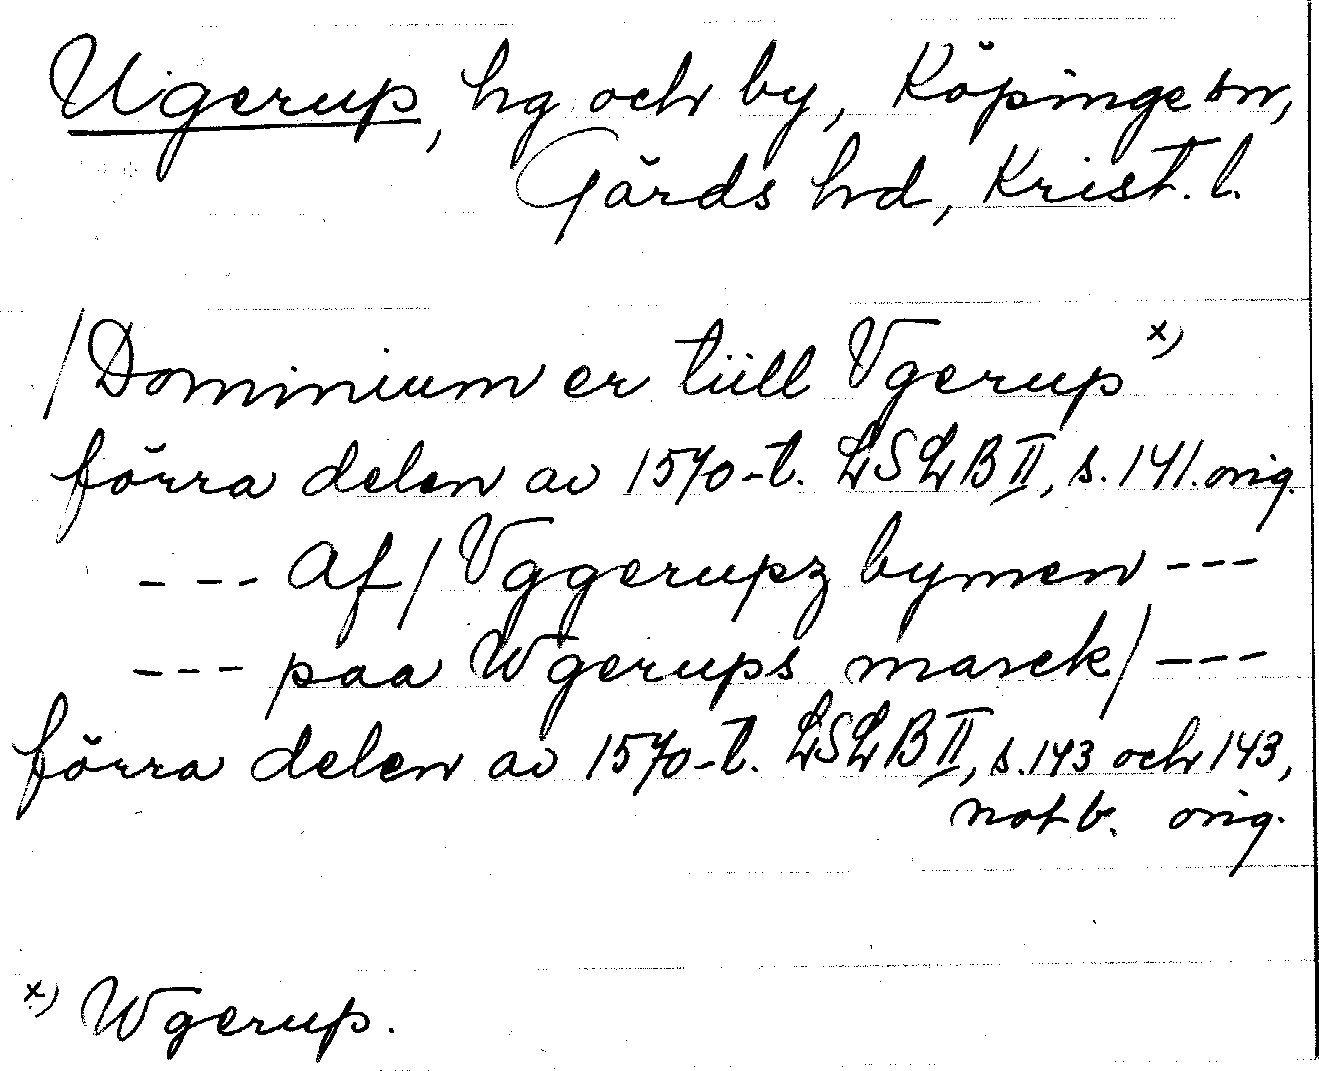 Ugerup, hg och by, Köpinge sn,
Gärds hd, Krist. l.
/Dominium er tiill Vgerup x)
förra delen av 1570-t. LSLB II, s. 141. orig.
--- Af/ Vggerupz bymen ---
--- paa Wgerups marck/ ---
förra delen av 1570-t. LSLB II, s. 143 och 143,
not b. orig.
x) Wgerup.